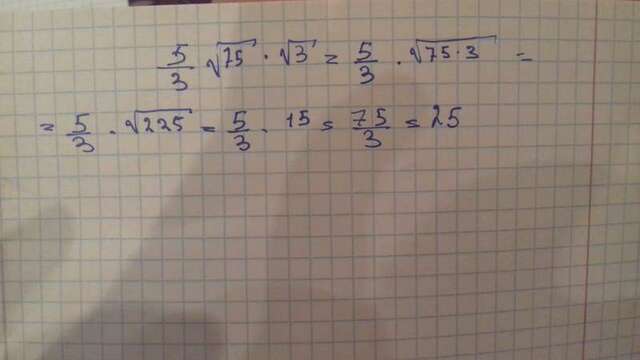 5/3 √75 · √3 = 5/3 · √75·3 =
= 5/3 · √225 = 5/3 · 15 = 75/3 = 25